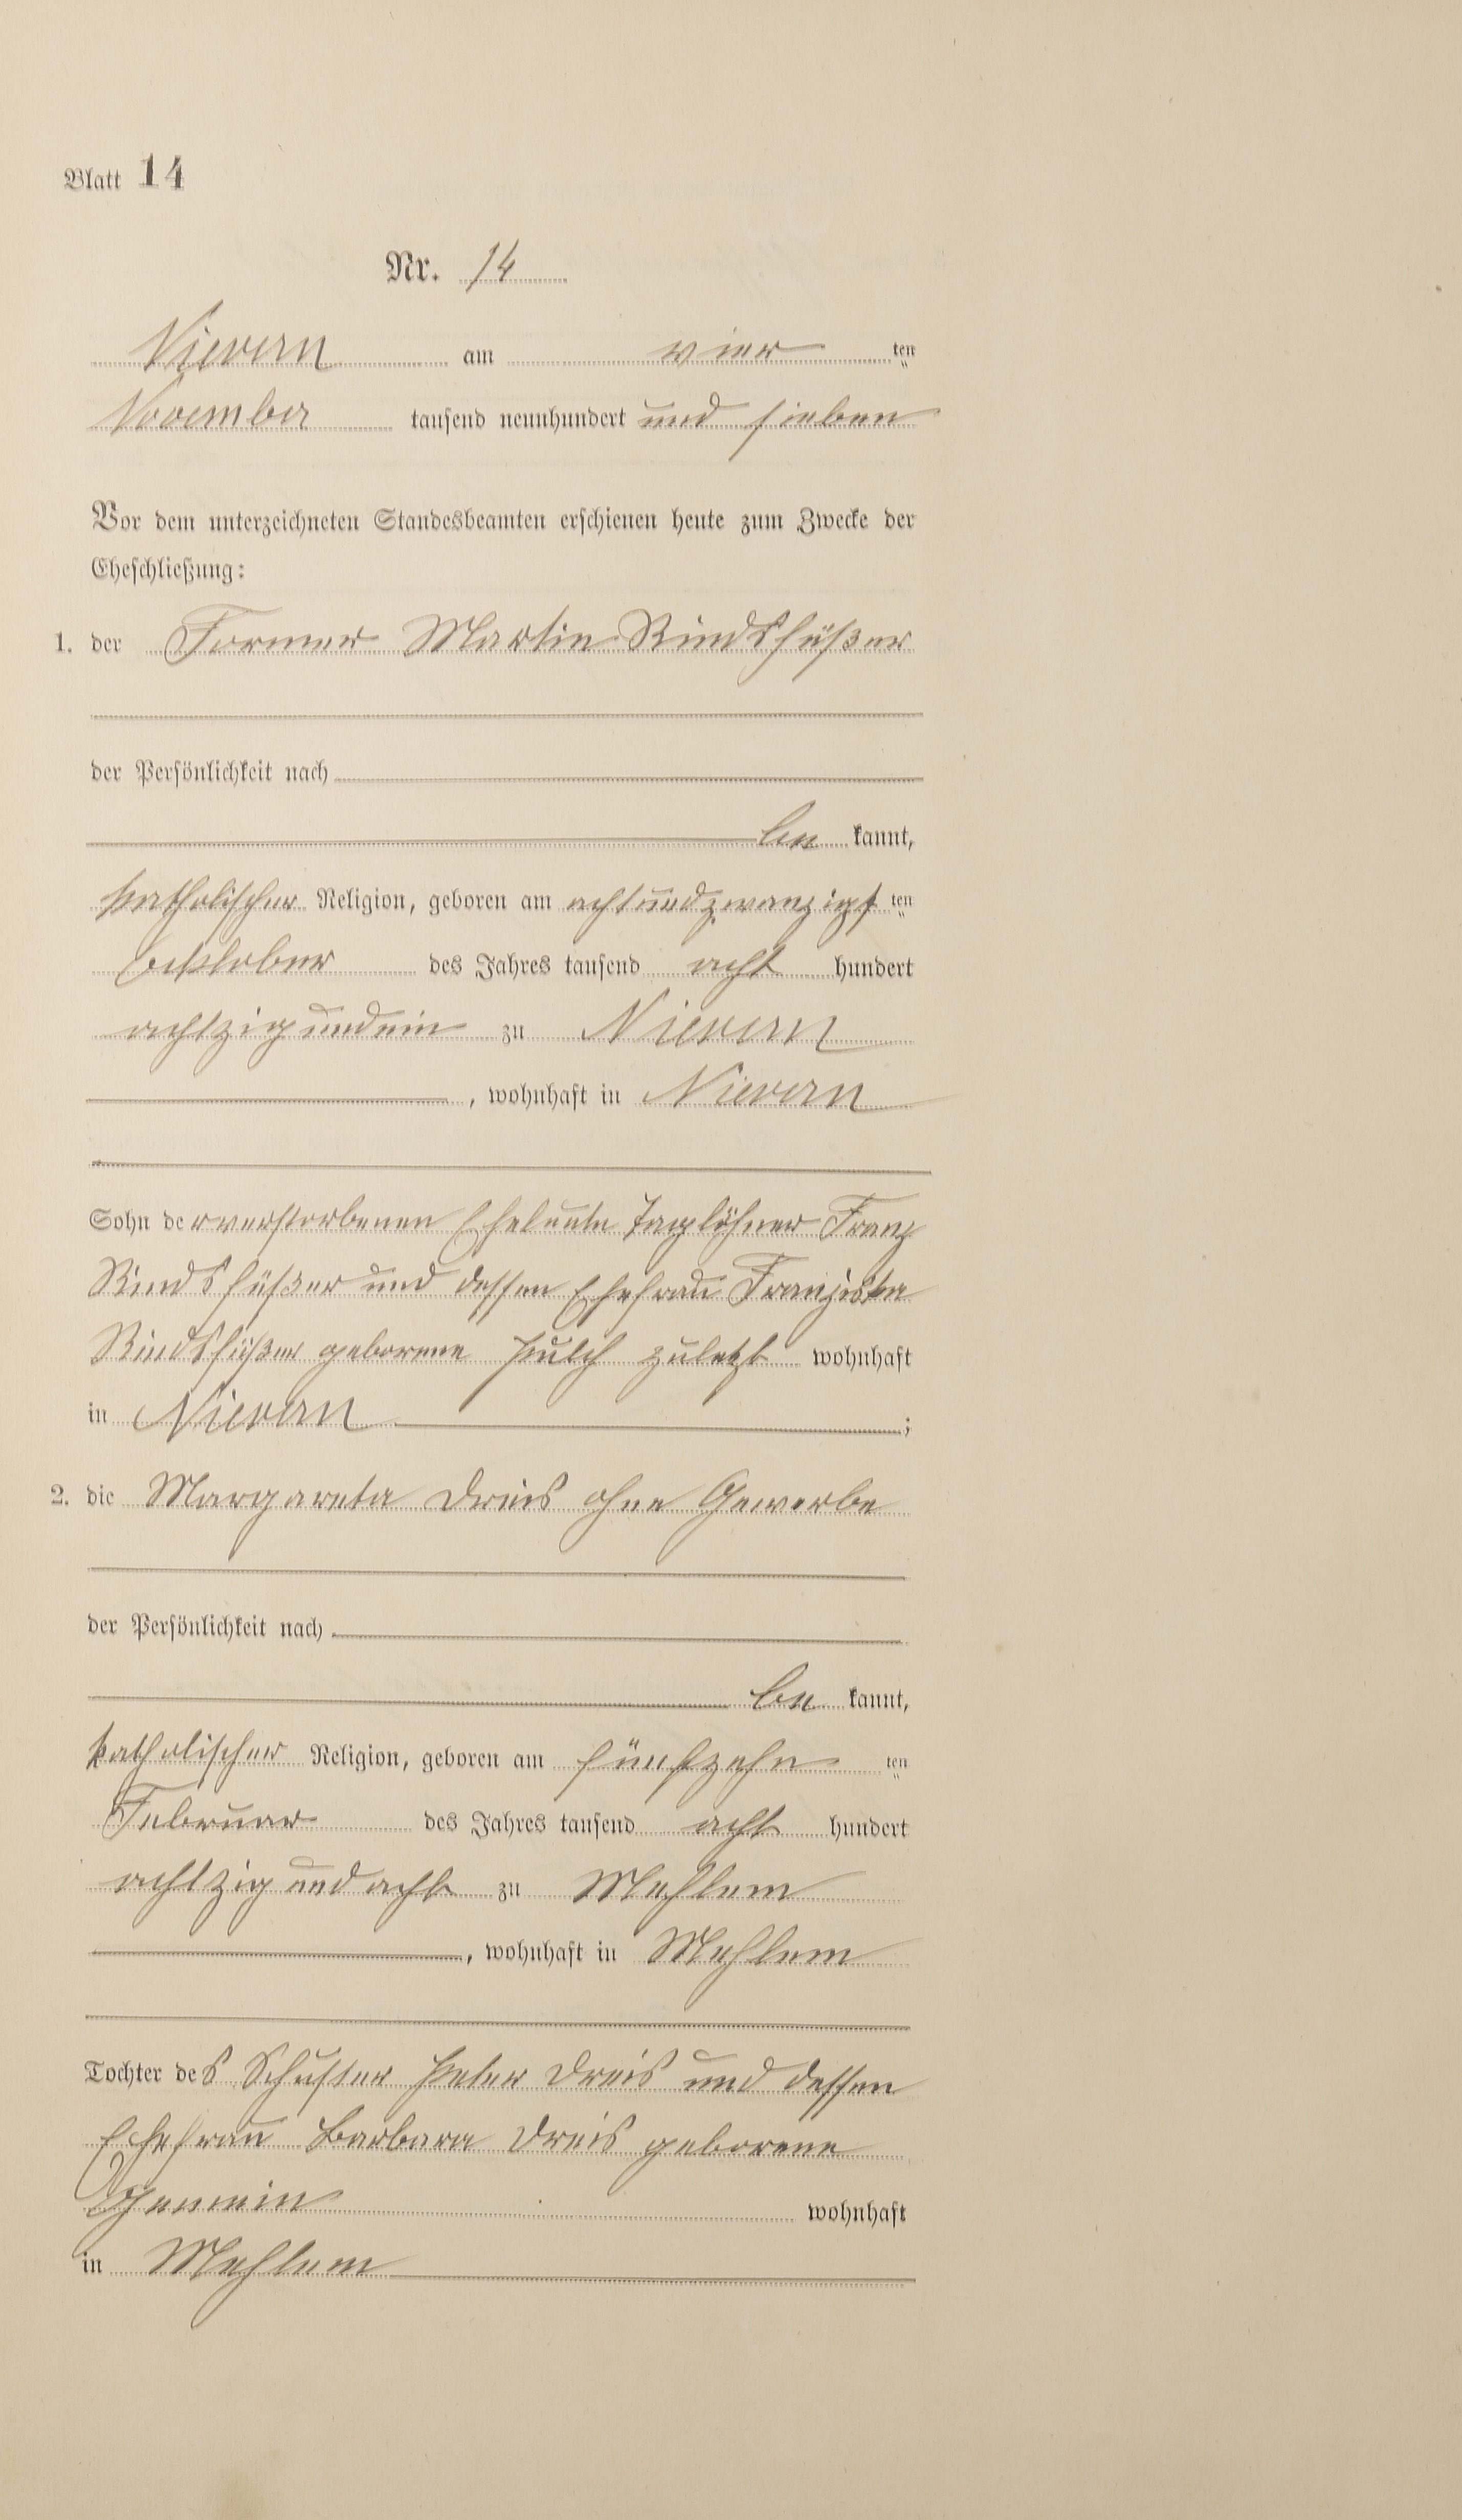 Blatt 14
Nr. 14
Nievern am vier ten
November tausend neunhundert und sieben
Vor dem unterzeichneten Standesbeamten erschienen heute zum Zwecke der
Eheschließung:
1. der Former Martin Rindsfüßer
der Persönlichkeit nach
be kannt,
katholischer Religion, geboren am achtundzwanzigst ten
Oktober des Jahres tausend acht hundert
achtzig undein zu Nievern
, wohnhaft in Nievern
Sohn der verstorbenen Eheleute Taglöhner Franz
Rindsfüßer und dessen Ehefrau Franziska
Rindsfüßer geborene Pulch zuletzt wohnhaft
in Nievern ;
2. die Margareta Dreis ohne Gewerbe
der Persönlichkeit nach
be kannt,
katholischer Religion, geboren am fünfzehn ten
Februar des Jahres tausend acht hundert
achtzig und acht zu Mehlem
, wohnhaft in Mehlem
Tochter des Schuster Peter Dreis und dessen
Ehefrau Barbara Dreis geborene
wohnhaft
in Mehlem